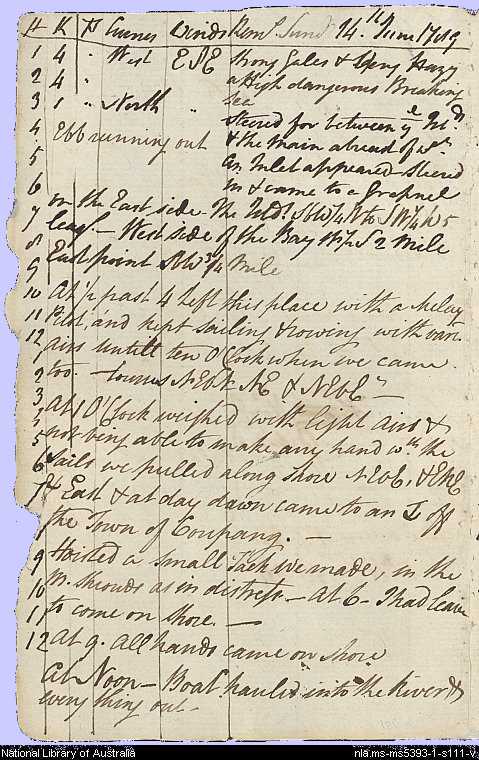 H K F Courses Winds Rem.s Sund.y 14.th June 1789
1 4 " West ESE Strong Gales & Very Hazy
2 4 " a High dangerous Breaking
3 1 " North " Sea
Steered for between y.e Isl.d
4 Ebb running out & the Main ahead of us
5 An Inlet appeared Steered
6 in & came to a Grapnel
7 on the East side. The Isl.d
leag.s — West side of the Bay 2 Mile
8 East point 3/4 Mile
9
10 At 1/2 past 4 left this place with a Malay
11 Pilot, and kept sailing & rowing with
12 airs untill ten O'Clock when we came
1 too. — Courses NEbN NE & NEbE
2
3 At 1 O'Clock weighed with light Airs &
5 not being able to make any hand w.th the
6 Sails we pulled along shore NEbE, & ENE
7 & East & at day dawn came to an off
the Town of Coupang. —
9 Hoisted a small Jack we made, in the
10 M. Shrouds as in distress — At 6 — I had leave
11 to come on Shore. —
12 At 9. All hands came on shore
At Noon — Boat hauled into the River &
every thing out —
National Library of Australia nla.ms-ms5393-1-s111-v